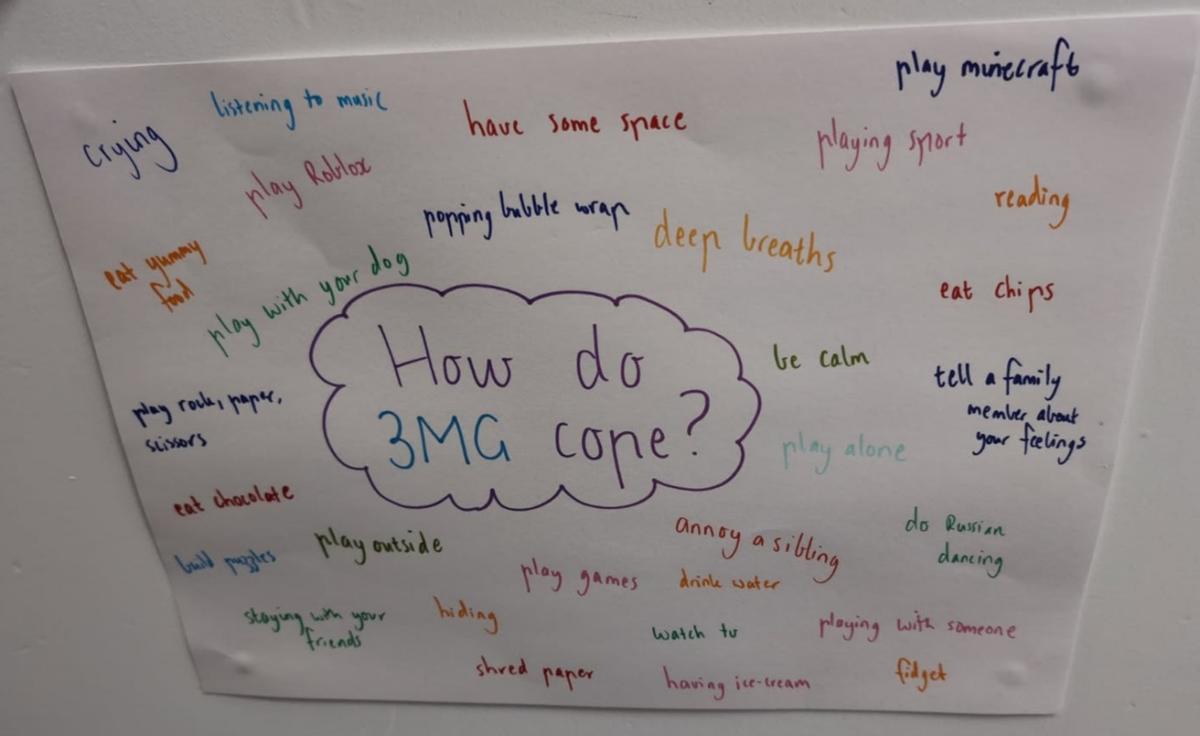 play minecraft
listening to music
have some space
crying
playing sport
play Roblox
reading
popping bubble wrap
deep breaths
eat yummy
food
play with your dog
eat chips
How do
3MG cope?
be calm
tell a family
member about
your feelings
play rock, paper,
scissors
play alone
eat chocolate
annoy a sibling
do Russian
dancing
play outside
build puzzles
play games
drink water
staying with your
friends
hiding
watch tv
playing with someone
shred paper
having ice-cream
fidget